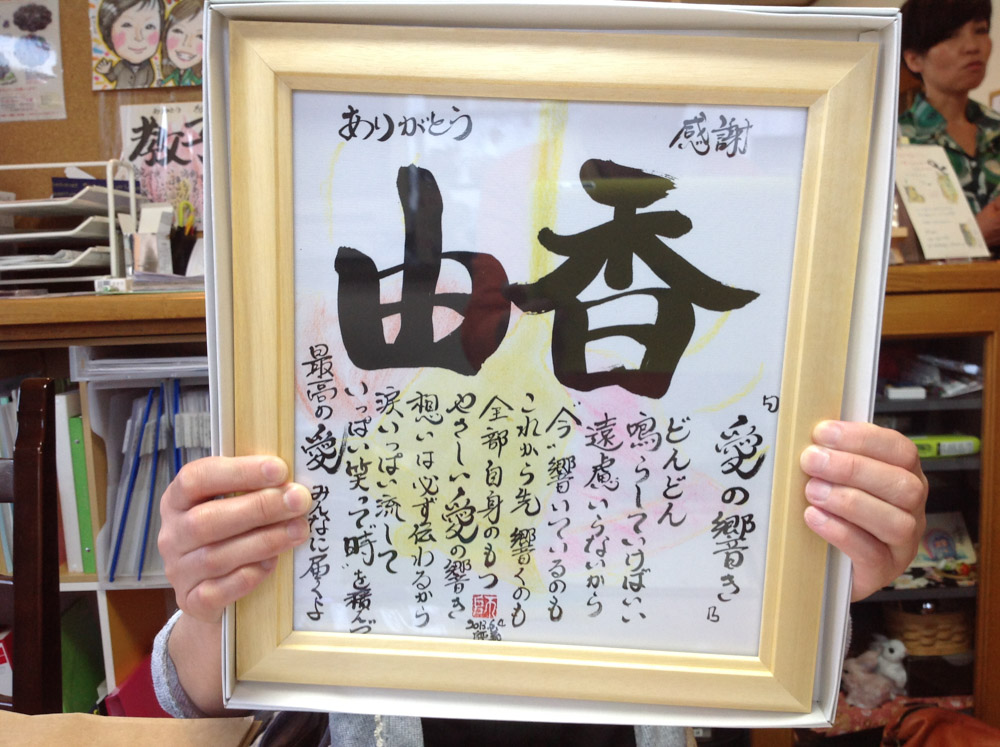 ありがとう
感謝
由香
「愛の響き」
どんどん
鳴らしていけばいい
遠慮いらないから
今響いているのも
これから先響くのも
全部自身のもつ
やさしい愛の響き
想いは必ず伝わるから
涙いっぱい流して
いっぱい笑って時を積んで
最高の愛みんなに届くよ
2013.6.2
教子